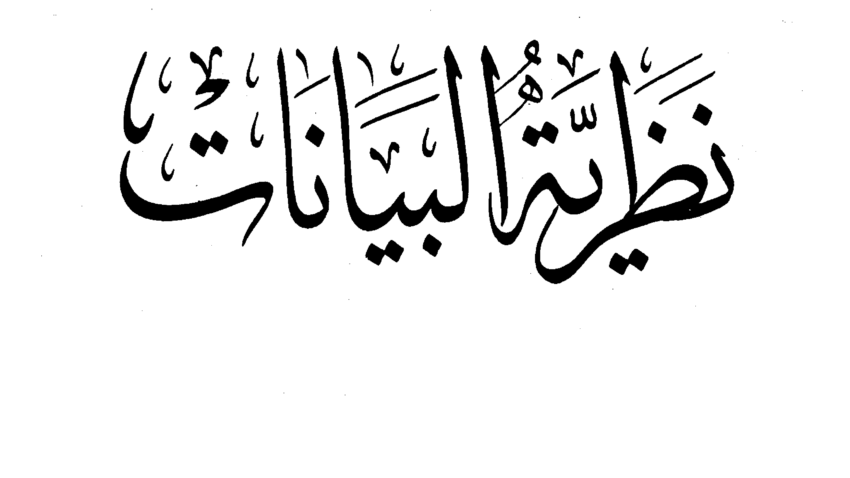 نَظَرِيَّةُ الْبَيَانَاتْ